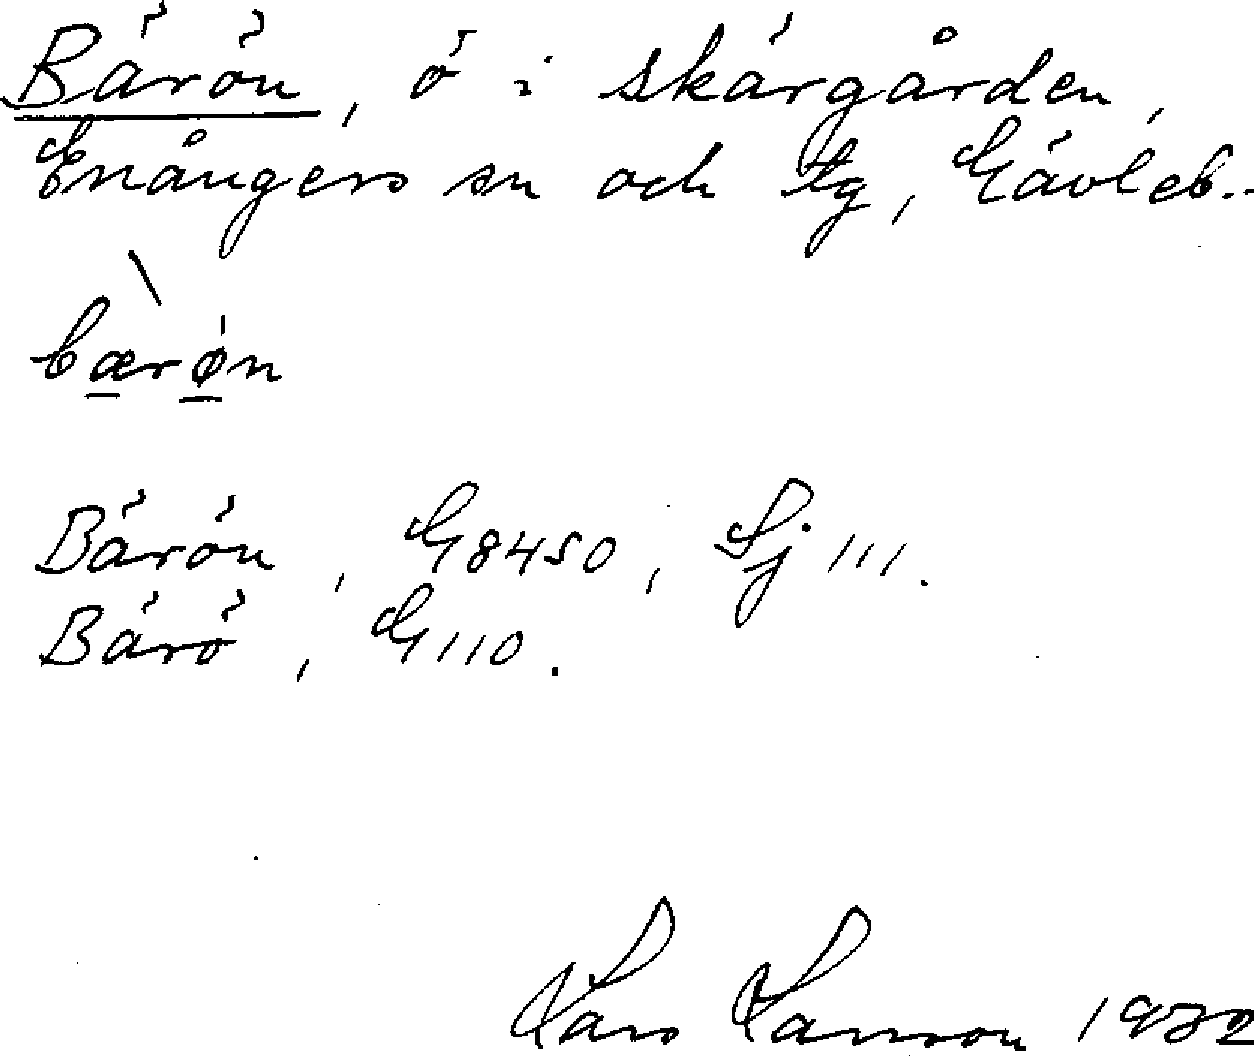 Bärön, ö i skärgården,
Enångers sn och tg, Gävleb..
bærøn
Bärön, G8450, Sj 111.
Bärö, G110.
Lars Larsson 1932